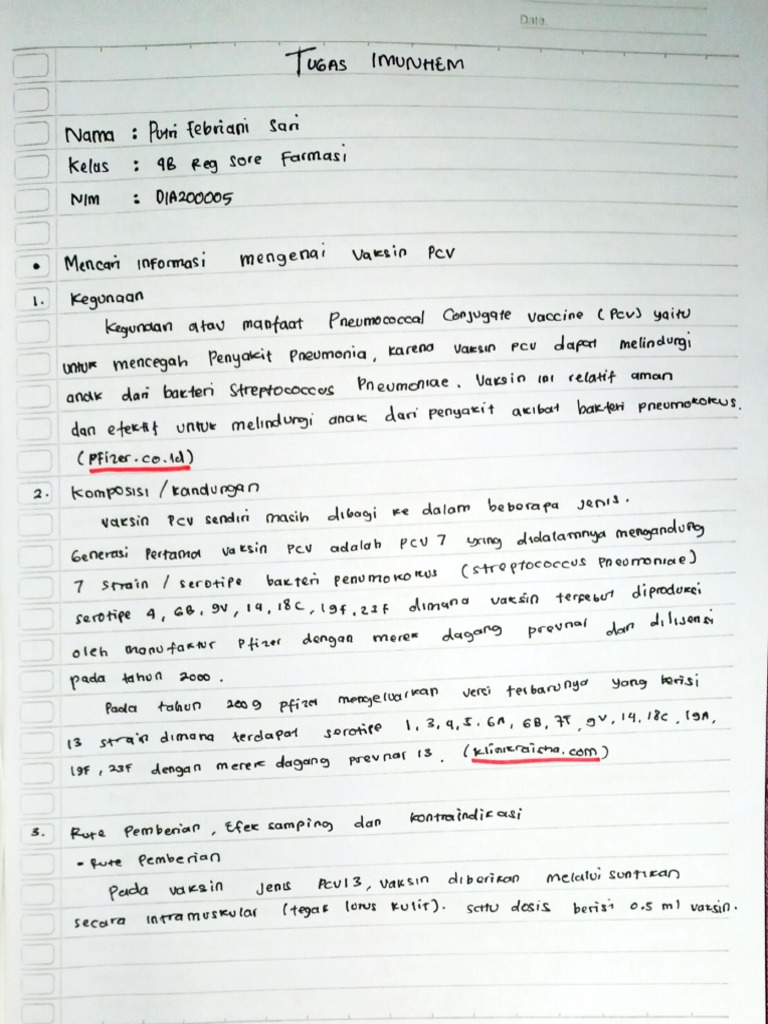 Date.
TUGAS IMUNHEM
Nama : Putri Febriani Sari
Kelas : 4B Reg Sore Farmasi
NIM : D1A200005
• Mencari informasi mengenai vaksin PCV
1. Kegunaan
Kegunaan atau manfaat Pneumococcal Conjugate Vaccine (PCV) yaitu
untuk mencegah Penyakit Pneumonia, karena vaksin PCV dapat melindungi
anak dari bakteri Streptococcus Pneumoniae. Vaksin ini relatif aman
dan efektif untuk melindungi anak dari penyakit akibat bakteri pneumokokus.
(pfizer.co.id)
2. Komposisi / Kandungan
Vaksin PCV sendiri masih dibagi ke dalam beberapa jenis.
Generasi Pertama vaksin PCV adalah PCV 7 yang didalamnya mengandung
7 strain / serotipe bakteri penumokokus (streptococcus pneumoniae)
serotipe 4, 6B, 9V, 14, 18C, 19F, 23F dimana vaksin tersebut diproduksi
oleh manufaktur Pfizer dengan merek dagang prevnar dan dilisensi
pada tahun 2000.
Pada tahun 2009 pfizer mengeluarkan versi terbarunya yang berisi
13 strain dimana terdapat serotipe 1, 3, 4, 5, 6A, 6B, 7F, 9V, 14, 18C, 19A,
19F, 23F dengan merek dagang prevnar 13. (klinikraisha.com)
3. Rute Pemberian, Efek samping dan kontraindikasi
- Rute Pemberian
Pada vaksin jenis PCV13, vaksin diberikan melalui suntikan
secara intramuskular (tegak lurus kulit). satu dosis berisi 0.5 ml vaksin.